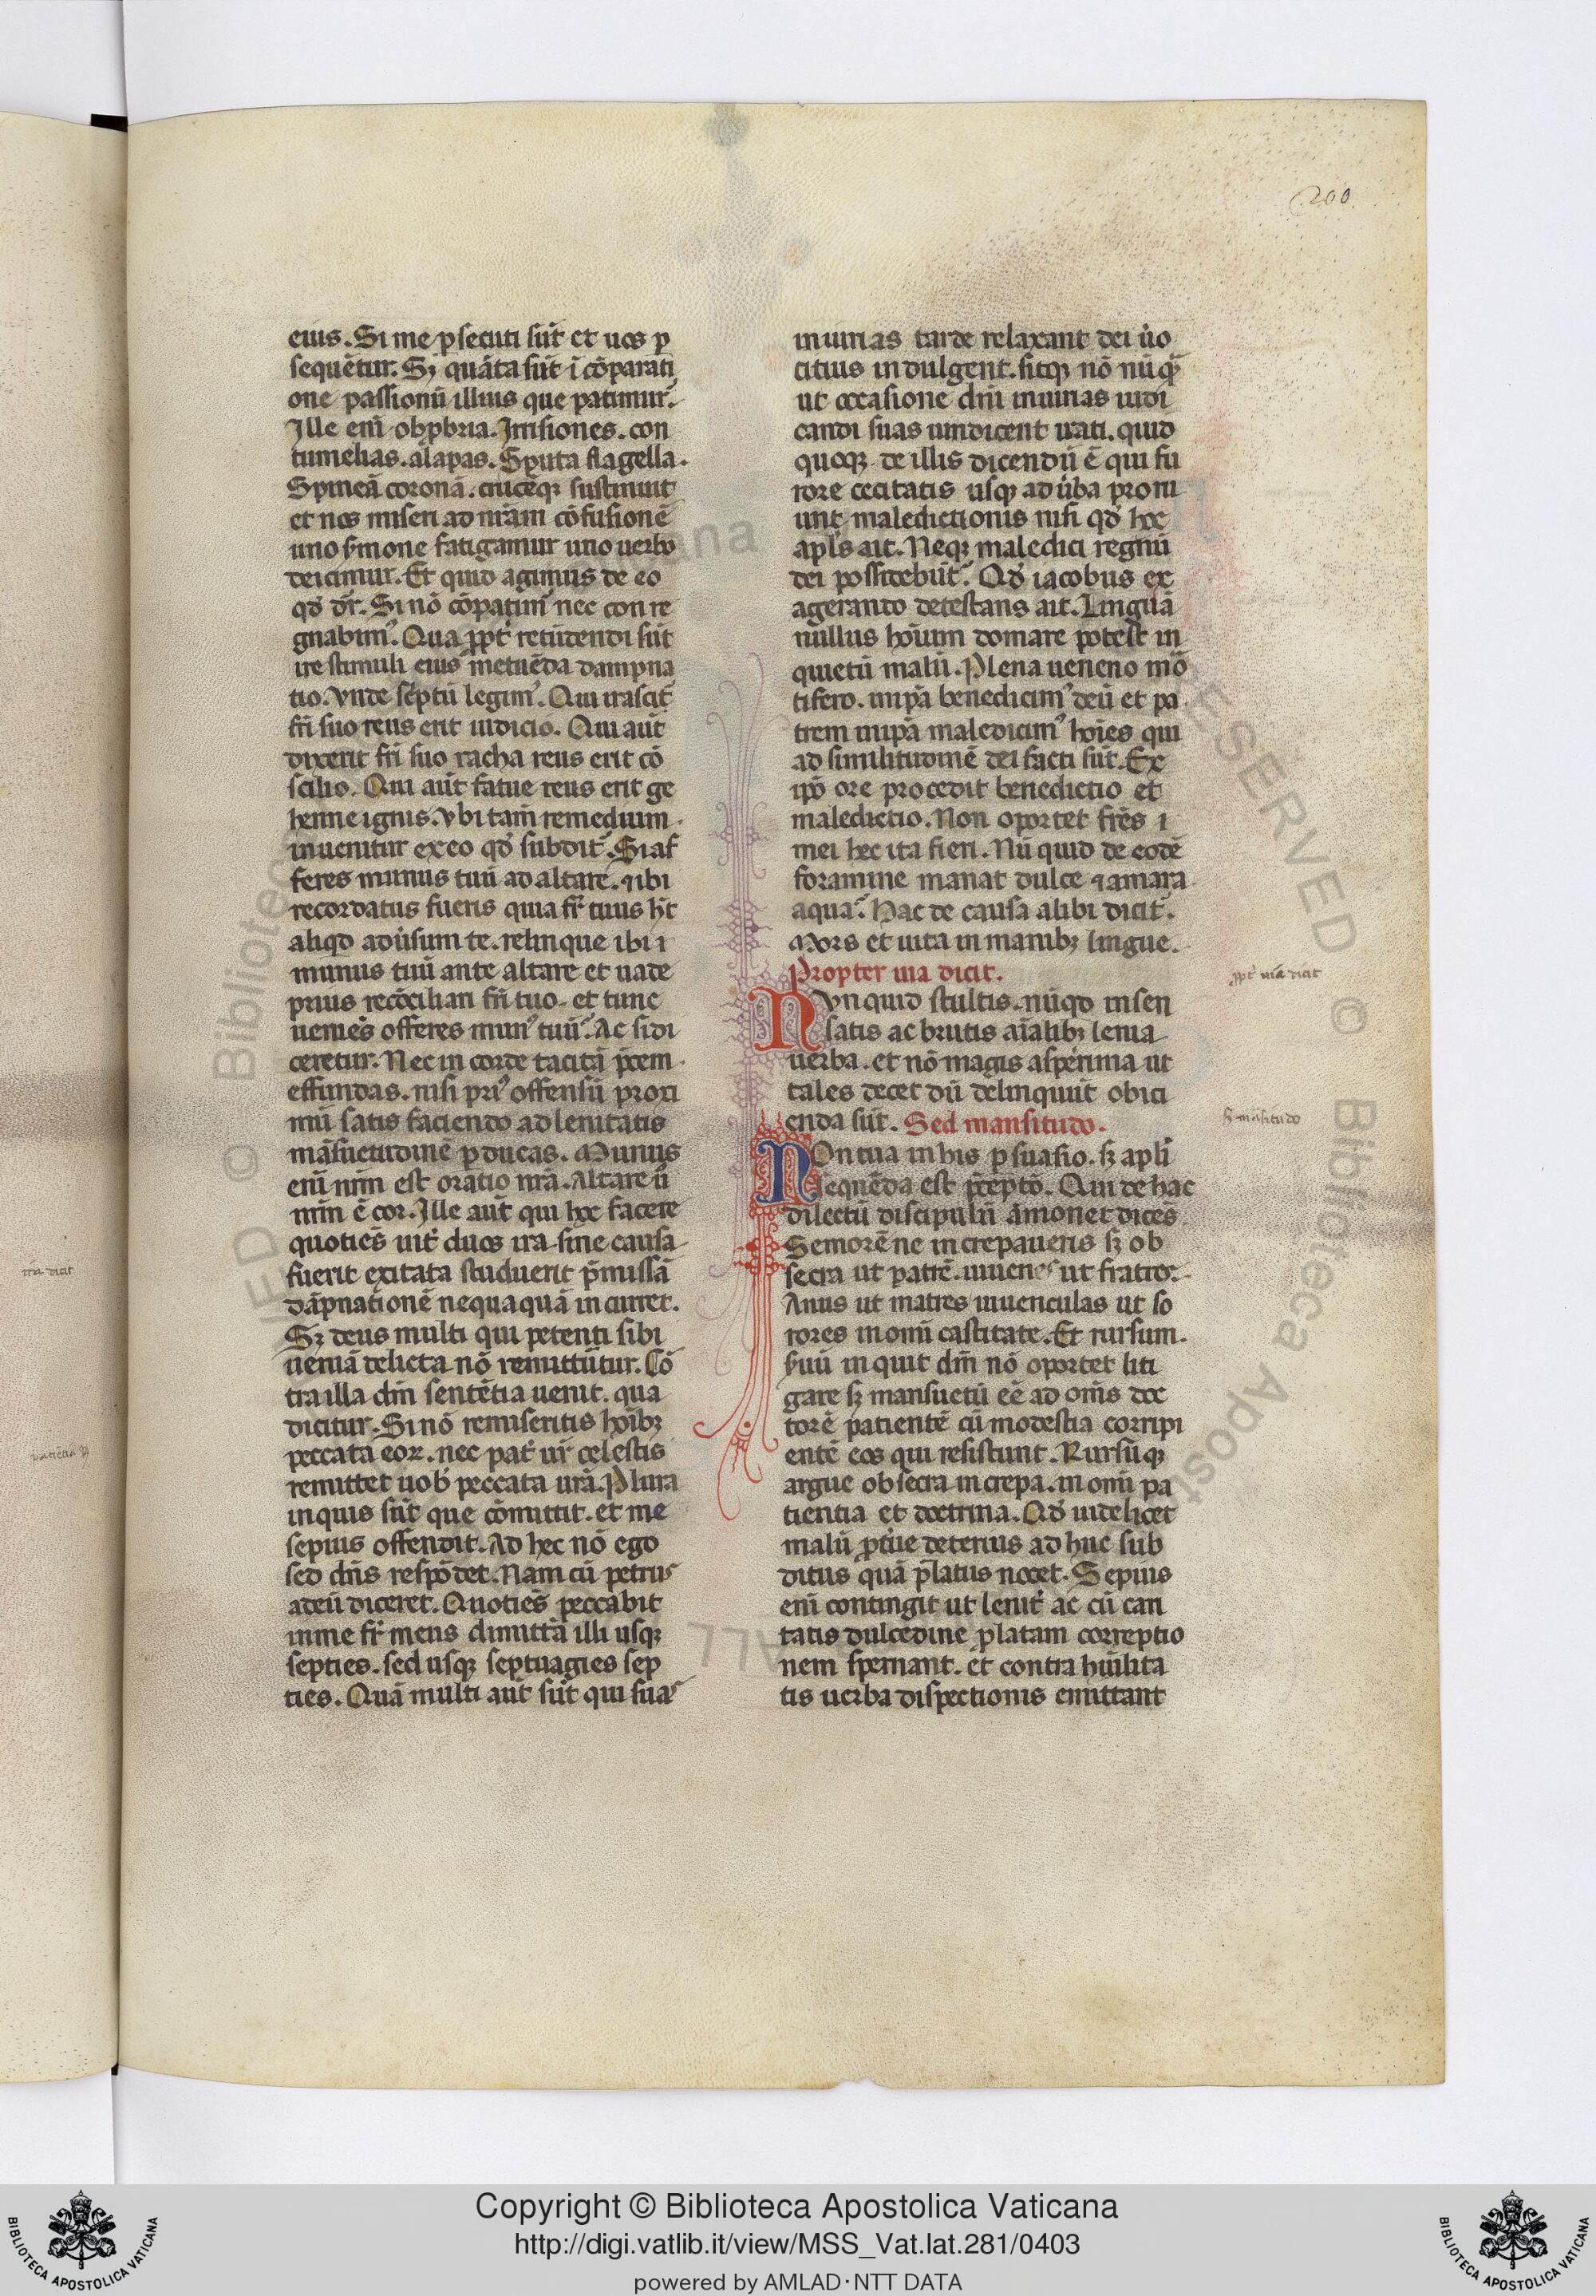 200
eius. Si me ꝑsecuti sūt et uos ꝑ
sequētur. Sꝫ quāta sūt ī cōparati
one passionū illius que patimur.
Ille enī obꝓbria. Irrisiones. con
tumelias. alapas. Sputa flagella.
Spineā coronā. crucēqꝫ sustinuit
et nos miseri ad nrām cōfusionē
uno ẜmone fatigamur uno uerbo
deicimur. Et quid agimus de eo
qd̓ dr̄. Si nō cōpatimꝰ nec con re
gnabimꝰ. Qua ꝓpt̓ retūdendi sūt
ire stimuli eiusꝰ metuēda dampna
tio. Vnde sc̓ptū legimꝰ. Qui irascit̓
frī suo reus erit iudicio. Qui aūt
dixerit frī suo racha reus erit cō
scilio. Qui aūt fatue reus erit ge
henne ignis. vbi tam̄ remedium
inuenitur ex eo qd̓ subdit̓. Si af
feres munus tuū ad altare. ⁊ ibi
recordatus fueris quia fr̄ tuus ht̄
aliqd adu̓sum te. relinque ibi i
munus tuū ante altare et uade
prius recōciliari frī tuo. et tunc
ueniēs offeres munꝰ tuū. Ac si di
ceretur. Nec in corde tacitā p̄cem
effundas. nisi priꝰ offensū proxi
mū satis faciendo ad lenitatis
māsuetudinē ꝑducas. Munus
enī nrm̄ est oratio nrā. Altare ū
nrm̄ ē cor. Ille aūt qui hoc facere
quotiēs int̓ duos ira sine causa
fuerit exitata studuerit p̄missā
dāpnationē nequaquā incurret.
Sꝫ deus multi qui petenti sibi
ueniā delicta nō remittūtur. Cō
tra illa dm̄ sentētia uenit. qua
dicitur. Si nō remiseritis hoībꝫ
peccata eoꝝ. nec pat̓ ur̄ celestis
remittet uob̓ peccata urā. Plura
inquis sūt que cōmittit. et me
sepius offendit. Ad hec nō ego
sed dn̄s respōdet. Nam cū petrus
ad eū diceret. Quotiēs peccabit
in me fr̄ meus dimittā illi usqꝫ
septies. sed usqꝫ septuagies sep
ties. Quā multi aūt sūt qui suas
iniurias tarde relaxant dei ūo
citius indulgent. sitqꝫ nō nūqꝫ̄
ut occasione dnī iniurias iudi
candi suas uindicent irati. quid
quoqꝫ de illis dicendū ē qui fu
rore cecitatis usqꝫ ad ūba proru
unt maledictionis nisi qd̓ hoc
apls̄ ait. Neqꝫ maledici regnū
dei possidebūt. Qd̓ iacobus ex
agerando detestans ait. Linguā
nullus hoīum domare potest in
quietū malū. Plena ueneno mō
tifero. in ip̄a benedicimꝰ deū et pa
trem in ip̄a maledicimꝰ hoīes qui
ad similitudinē dei facti sūt. Ex
ip̄o ore procedit benedictio et
maledictio. Non oportet fr̄es i
mei hec ita fieri. Nū quid de eodē
foramine manat dulce ⁊ amara
aqua. Hac de causa alibi dicit̓.
Mors et uita in manibꝫ lingue.
Propter ira dicit.
Nvnquid stultis. nūqd insen
satis ac brutis aīalibꝫ lenia
uerba. et nō magis asperima ut
tales decet dū delinquūt obici
enda sūt. Sed mansitudo.
Non tua in his ꝑsuasio. sꝫ aplī
sequēda est p̄cepto. Qui de hac
dilectū discipulū āmonet dices
Semorē ne increpaueris sꝫ ob
secra ut patrē. iuuenes ut fratres.
Anus ut matres iuuenculas ut so
rores in omī castitate. Et rursum.
ẜuū inquit dnī nō oportet liti
gare sꝫ mansuetū ee̅ ad om̄s doc
torē patientē cū modestia corripi
entē eos qui resistunt. Rursūqꝫ
argue obsecra increpa. in omī pa
tientia et doctrina. Qd̓ uidelicet
malū ꝓt̓ue deterius ad huc sub
ditus quā p̄latus nocet. Sepius
enī contingit ut lenit̓ ac cū cari
tatis dulcedine ꝓlatam correptio
nem spernant. et contra hūilita
tis uerba dispectionis emittant
ꝓpt̓ irā dicit
sꝫ māsitudo
ira dicit
Copyright © Biblioteca Apostolica Vaticana
http://digi.vatlib.it/view/MSS_Vat.lat.281/0403
powered by AMLAD·NTT DATA
BIBLIOTECA APOSTOLICA VATICANA
BIBLIOTECA APOSTOLICA VATICANA